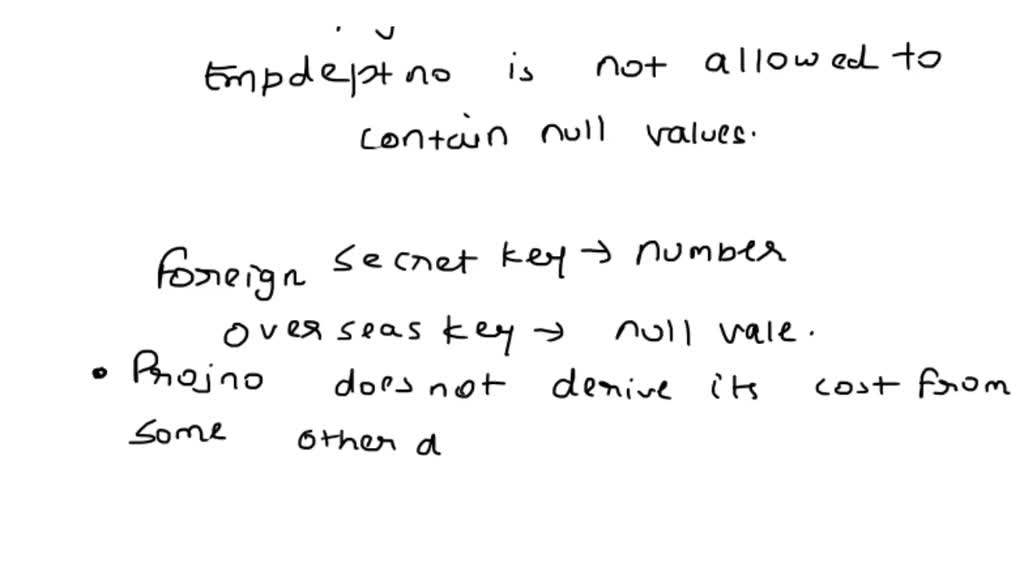 Empdeptno is not allowed to
contain null values.
Foreign secret key → number
overseas key → null vale.
• Projno does not derive its cost from
some other d